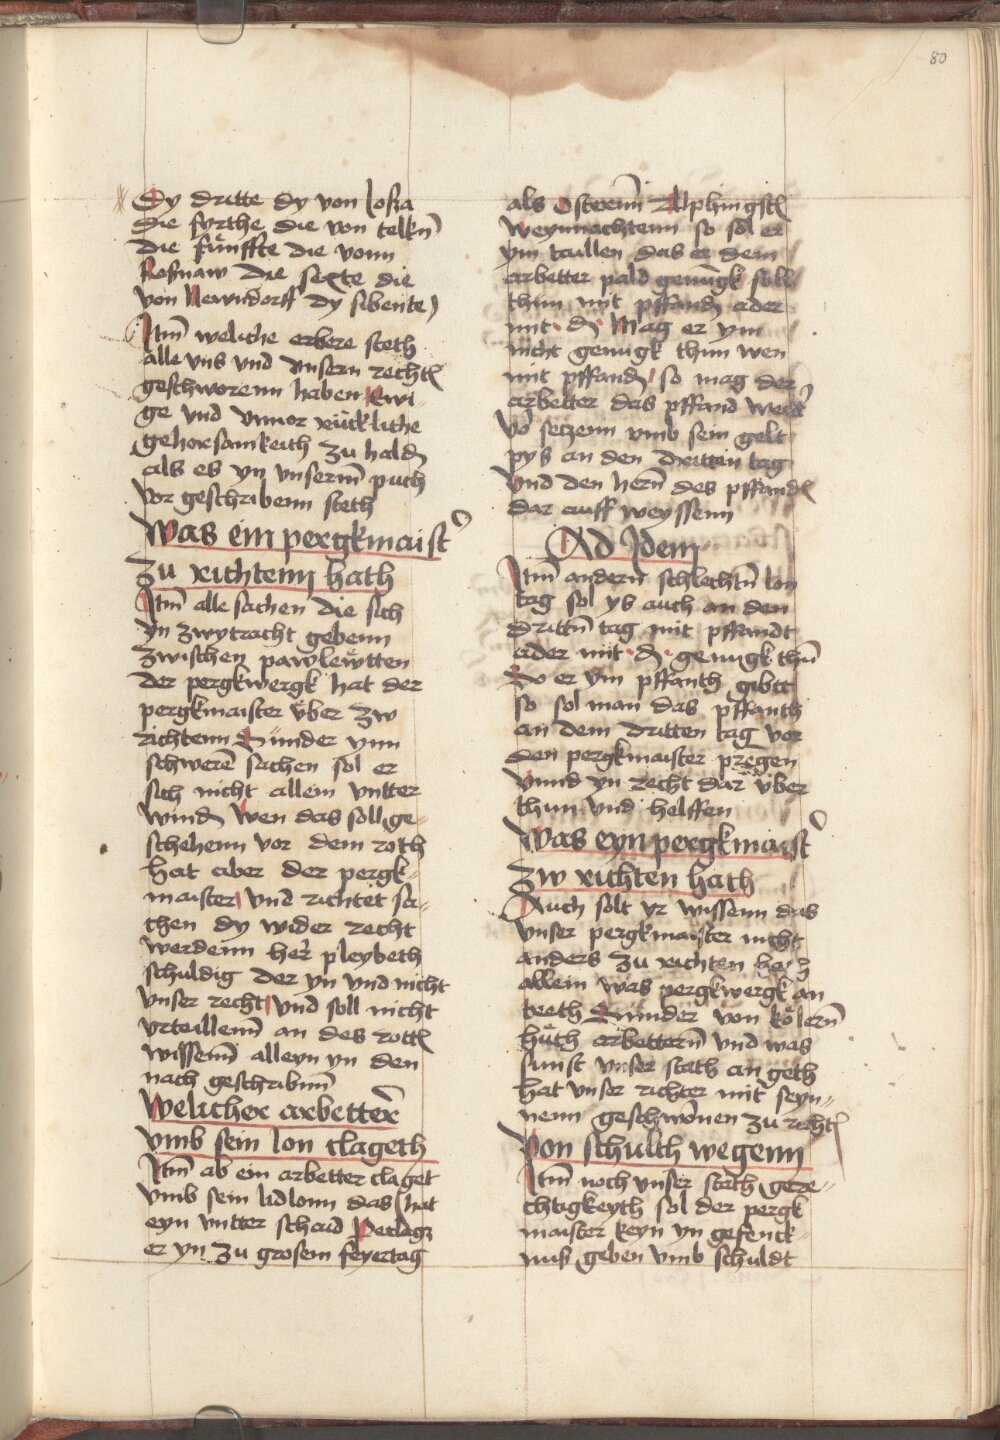 80
Dy dritte dy von loßa
die fyrthe die von telkn̄
die fuͤnffte die vonn
Roßnaw die sexte die
von Newndorff dy sibente
Itm̄ weliche erbere steth
alle vns vnd vnsern rechtn̄
geschworenn haben Ewi
ge vnd vnuor ruͤckliche
gehorsamkeith zu haldn̄
als es yn vnserm̄ puch
vor geschribenn steth
Was ein pergkmaist̄
zu richtenn hath
Itm̄ alle sachen die sich
yn zwytracht gebenn
zwischen pawlewͤtten
der pergkwergk hat der
pergkmaister vͤber zw
richtenn Suͤnder ynn
schwerē sachen sol er
sich nicht allein vntter
windn̄ Wen das soll ge-
schehenn vor dem roth
hat aber der pergk-
maister vnd richtet sa-
chen dy wider recht
werdenn her pleybeth
schuldig der yn vnd nicht
vnser recht vnd soll nicht
vrteillenn̄ an des rottn̄
wissenn̄ alleyn yn den
nach geschribnn̄
Welicher arbetter
vmb sein lon clageth
Itm̄ ab ein arbetter claget
vmb sein lidlonn das hat
eyn vntter schaid Peclagz
er yn zu grosem feyertag
als Osterenn̄ phingstn̄
weynnachtenn so sol er
ym taillen das er dem
arbetter pald genuͤgk soll
thun mit pffandn̄ ader
mit · dn̄ · Mag er ym
nicht genugk thun wen
mit pffandn̄ so mag der
arbetter das pffand
vō setzenn vmb sein gelt
pys an den dritten tag
vnd den hern̄ des pffandn̄
dar auff weyssenn
Ad Idem
Itm̄ andern̄ schlechtn̄ lon
tag sol ys auch an den
drittn̄ tag mit pffandt
ader mit · dn̄ · genugk thū
So er ym pffanth gibtt
so sol man das pffanth
an dem dritten tag vor
den pergkmaister pregen
vnnd yn recht dar vͤber
thun vnd helffen
Was eyn pergkmaist̄
zw richten hath
Auch solt yr wissenn das
vnser pergkmaister nicht
anders zu richten hath
allein was pergkwergk an
treeth Suͤnder von koͤlern̄
huͤth arbettern̄ vnd was
sunst vnser stath an geth
hat vnser richter mit seyn-
nenn geschwonen zu richtn̄
Von schulth wegenn
Itm̄ noch vnser stath gere-
chtigkeyth sol der pergk
maister keyn yn gefenck-
nuß geben vmb schuldt